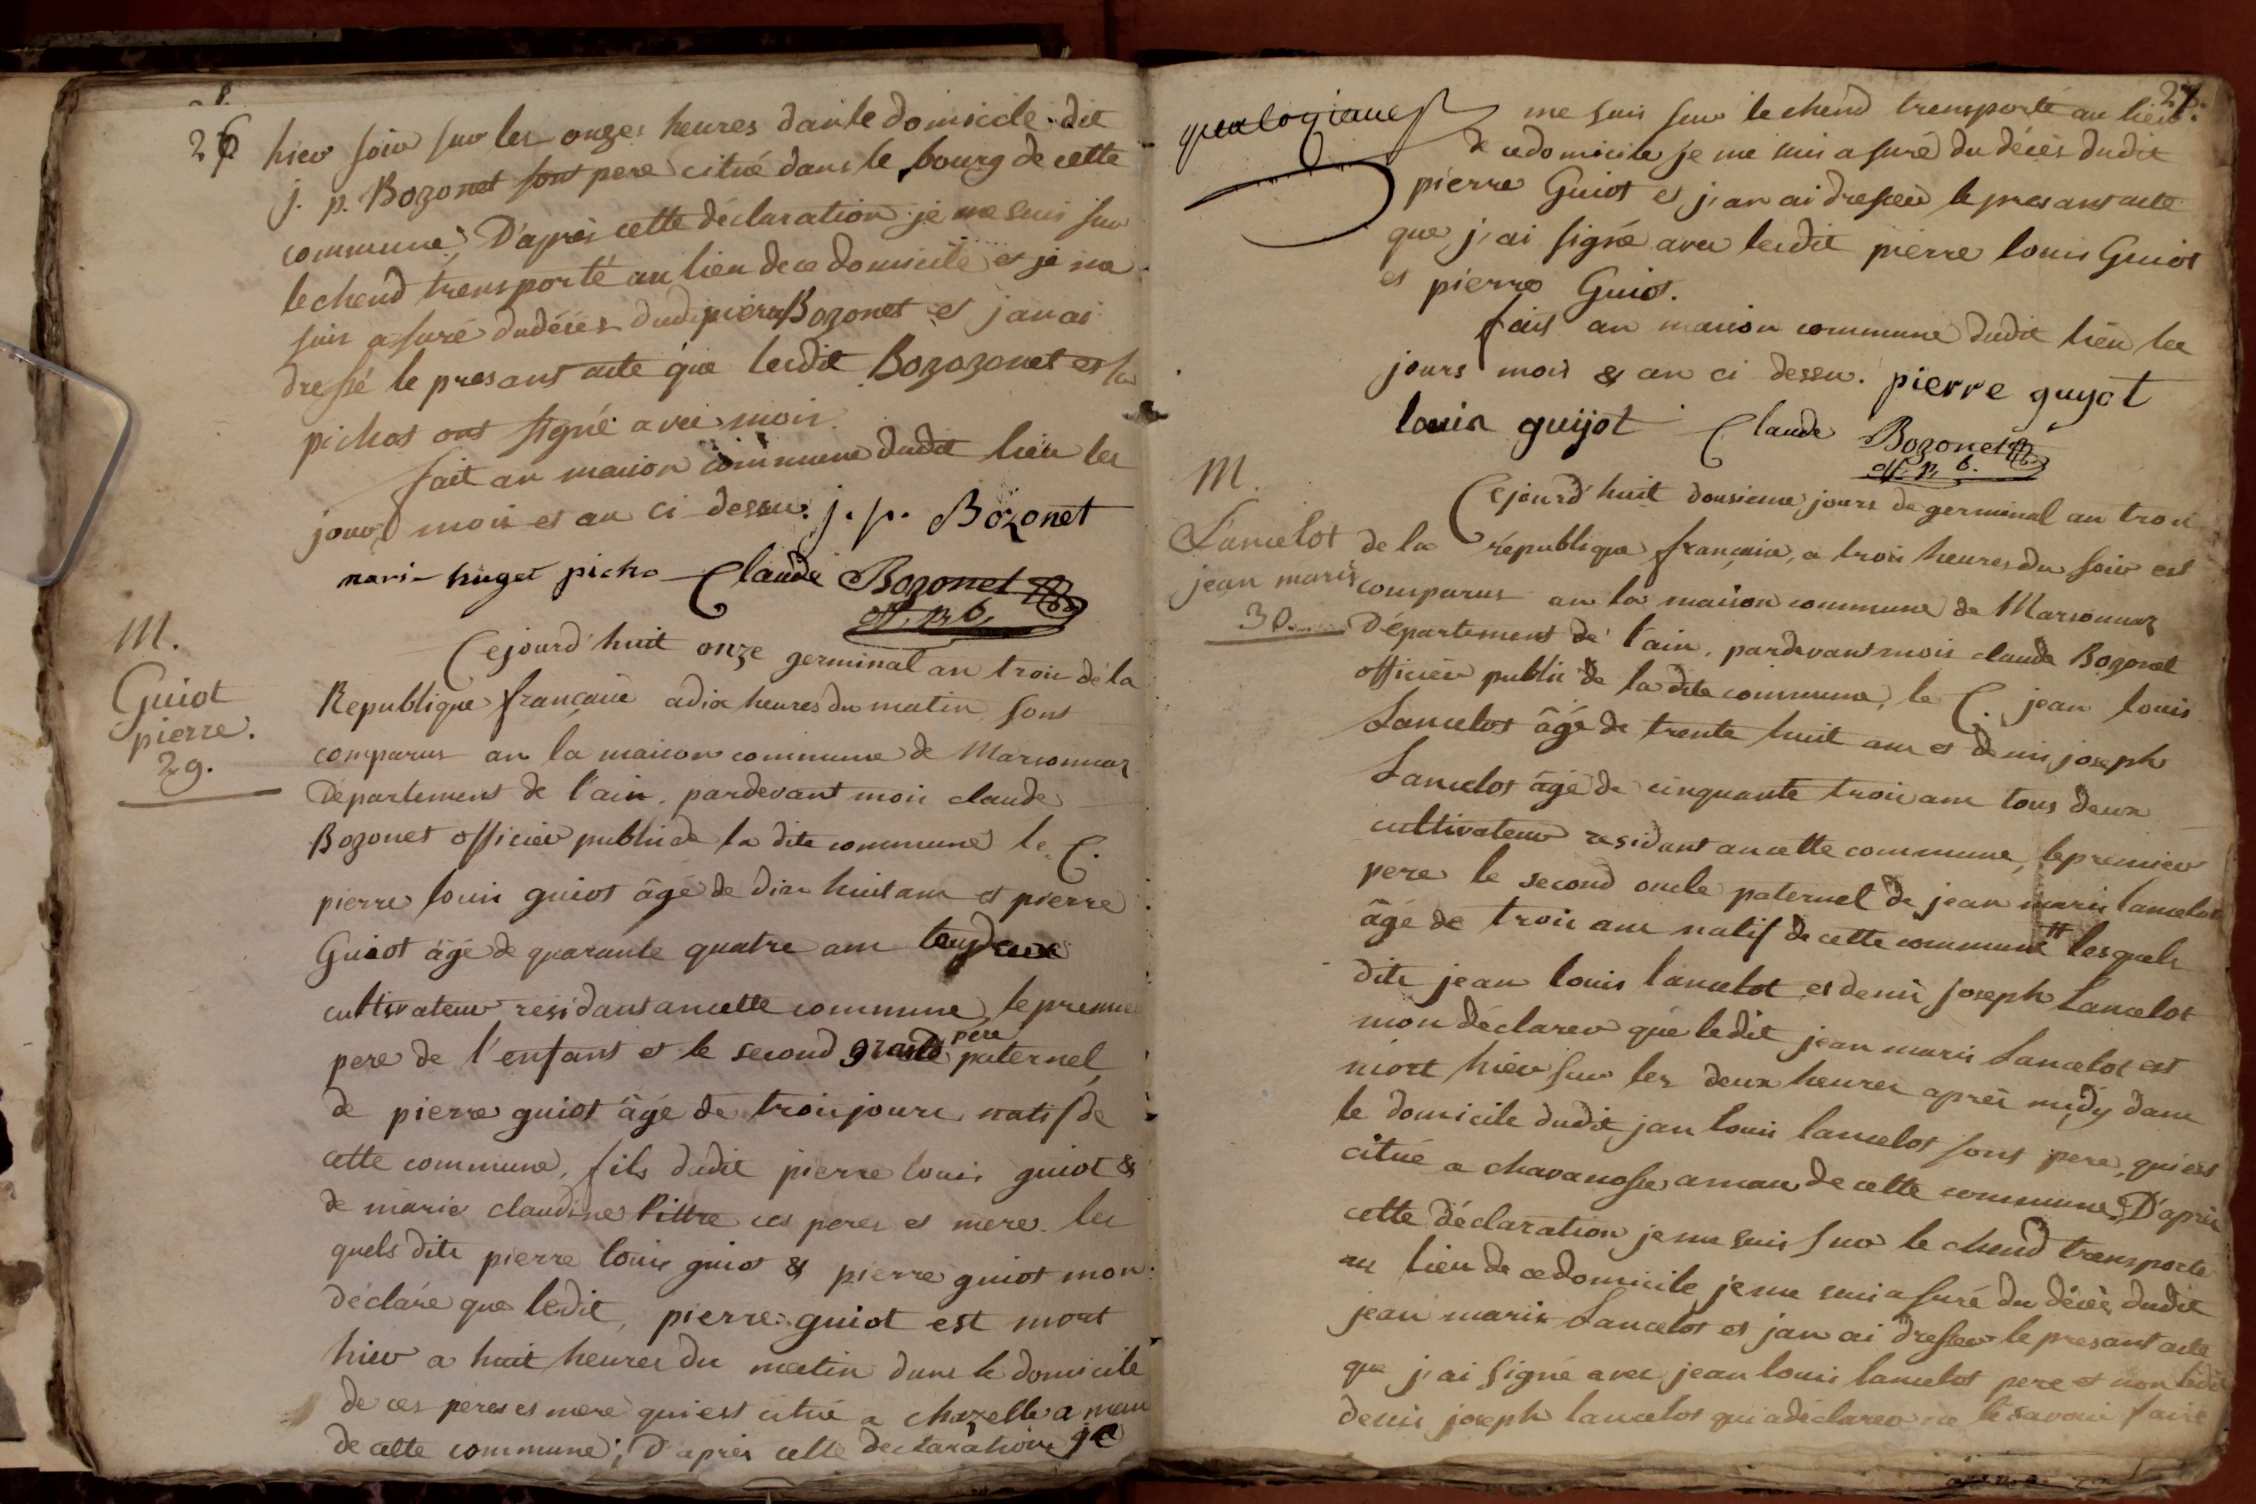 26
hier soir sur les onzes heures dans le domicile dit
j. p. Bozonet sont pere citué dans le bourg de cette
commune; D'apres cette déclaration je me suis sur
le chend transporté au lieu de ce domicile et je me
suis asuré du décès dudit pierre Bozonet et j'an ai
dressé le presant acte que lesdit Bozozonet et
pichot ont signé avec moi.
fait an maison commune dudit lieu les
jours mois et an ci dessu. j. p. Bozonet
mari huget picho Claude Bozonet
off. p. b.
M.
Guiot
pierre.
29.
Cejourd'huit onze germinal an trois de la
Republique française a dix heures du matin sont
comparus an la maison commune de Marsonnaz
Département de l'ain, pardevant moi claude
Bozonet officier public de la dite commune le C.
pierre louis guiot âgé de dix huit ans et pierre
Guiot âgé de quarante quatre ans tous deux
cultivateur residant an cette commune, le premier
pere de l'enfant et le second grand père paternel
de pierre guiot âgé de trois jours natif de
cette commune, fils dudit pierre louis guiot &
de marie claudine Pittre ces peres et mere. les
quels dits pierre louis guiot & pierre guiot mon
déclaré que ledit pierre guiot est mort
hier a huit heures du matin dans le domicile
de ces peres et mere qui est citué a chazelle a mau
de cette commune; D'apres cette declaration je
27.
me suis sur le chend transporté au lieu
de ce domicile je me suis asuré du décès dudit
pierre Guiot et j'an ai dresser le presant acte
que j'ai signé avec lesdit pierre louis Guiot
et pierre Guiot.
fait an maison commune dudit lieu les
jours mois & an ci dessu. pierre guyot
louis guijot Claude Bozonet
off. p. b.
M.
Lancelot
jean marie
30.
Cejourd'huit dousieme jours de germinal an trois
de la république française, a trois heures du soir est
comparus an la maison commune de Marsonnaz
Département de l'ain, pardevant moi claude Bozonet
officier public de la dite commune, le C. jean louis
Lancelot âgé de trente huit ans et denis joseph
Lancelot âgé de cinquante trois ans tous deux
cultivateur residant an cette commune, le premier
pere le second oncle paternel de jean marie lancelot
âgé de trois ans natif de cette commune lesquels
dits jean louis lancelot et denis joseph Lancelot
mon déclarer que ledit jean marie Lancelot est
mort hier sur les deux heures après midy dans
le domicile dudit jan louis lancelot sont pere, qui est
citué a chavanosse a mau de cette commune, D'apres
cette déclaration je me suis sur le chend transporté
au lieu de ce domicile je me suis asuré du décès dudit
jean marie Lancelot et j'an ai dresser le presant acte
que j'ai signé avec jean louis lancelot pere et non ledit
denis joseph lancelot qui a déclarer ne le savoir faire